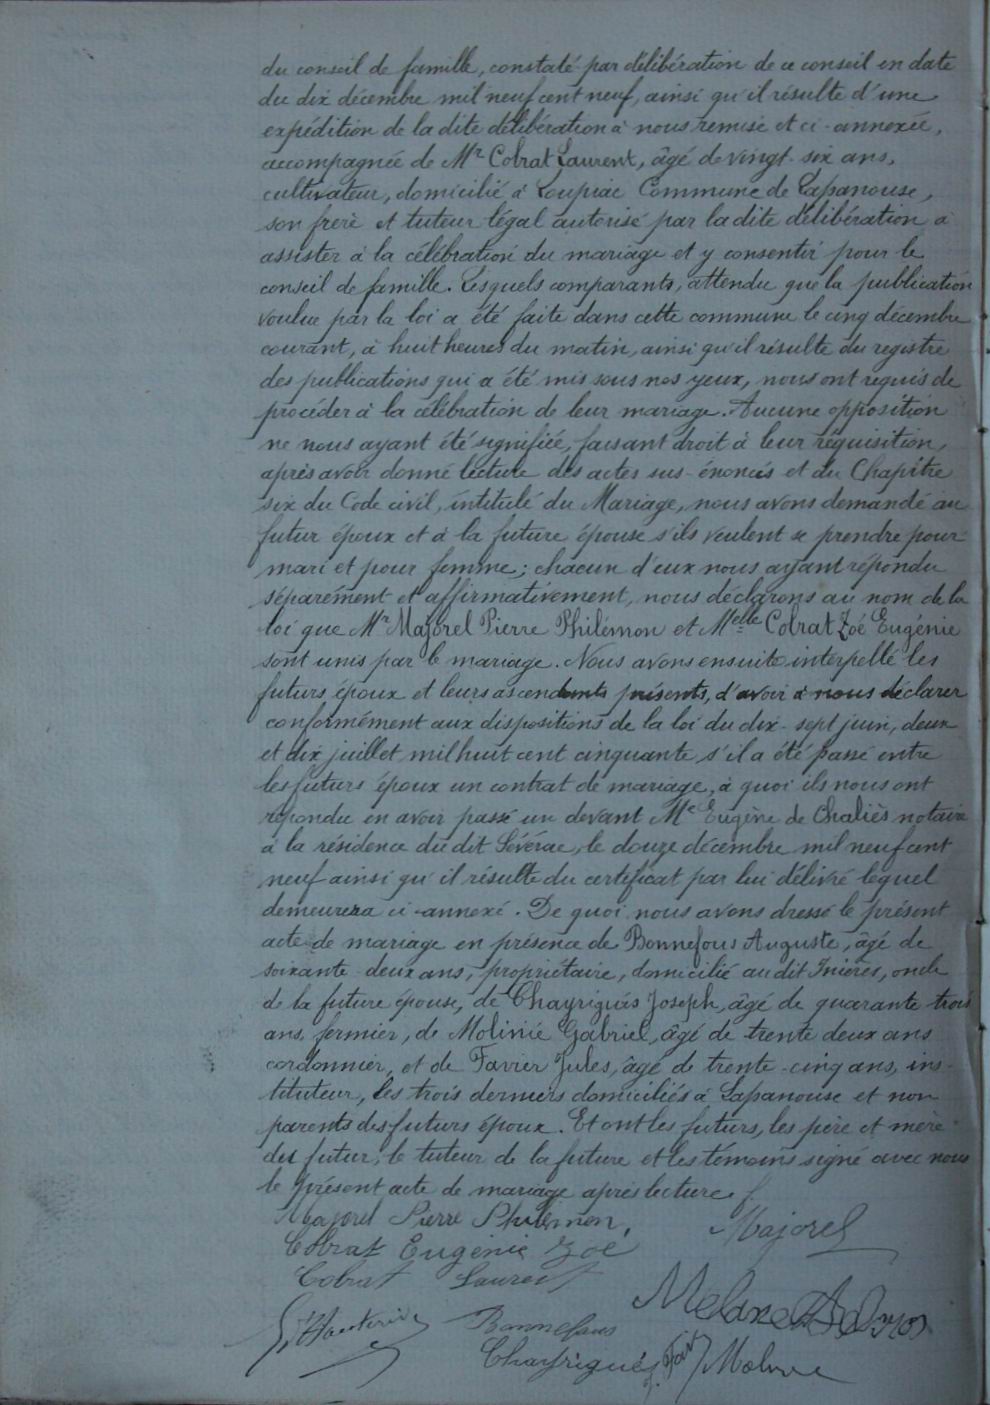 du conseil de famille, constaté par délibération de ce conseil en date
du dix décembre mil neuf cent neuf, ainsi qu'il résulte d'une
expédition de la dite délibération à nous remise et ci-annexée,
accompagnée de Mr Cobrat Laurent, âgé de vingt-six ans,
cultivateur, domicilié à Loupiac Commune de Lapanouse,
son frère et tuteur légal autorisé par la dite délibération à
assister à la célébration du mariage et y consentir pour le
conseil de famille. Lesquels comparants, attendu que la publication
voulue par la loi a été faite dans cette commune le cinq décembre
courant, à huit heures du matin, ainsi qu'il résulte du registre
des publications qui a été mis sous nos yeux, nous ont requis de
procéder à la célébration de leur mariage. Aucune opposition
ne nous ayant été signifiée, faisant droit à leur réquisition,
après avoir donné lecture des actes sus-énoncés et du Chapître
six du Code civil, intitulé du Mariage, nous avons demandé au
futur époux et à la future épouse s'ils veulent se prendre pour
mari et pour femme; chacun d'eux nous ayant répondu
séparément et affirmativement, nous déclarons au nom de la
loi que Mr Majorel Pierre Philémon et Melle Cobrat Zoé Eugénie
sont unis par le mariage. Nous avons ensuite interpellé les
futurs époux et leurs ascendants présents, d'avoir à nous déclarer
conformément aux dispositions de la loi du dix-sept juin, deux
et dix juillet mil huit cent cinquante, s'il a été passé entre
les futurs époux un contrat de mariage, à quoi ils nous ont
répondu en avoir passé un devant Me Eugène de Chaliès notaire
à la résidence du dit Sévérac, le douze décembre mil neuf cent
neuf ainsi qu'il résulte du certificat par lui délivré lequel
demeurera ci-annexé. De quoi nous avons dressé le présent
acte de mariage en présence de Bonnefous Auguste, âgé de
soixante-deux ans, propriétaire, domicilié au dit Inières, oncle
de la future épouse, de Chayriguès Joseph, âgé de quarante-trois
ans, fermier, de Molinié Gabriel, âgé de trente deux ans
cordonnier, et de Favier Jules, âgé de trente-cinq ans, ins-
tituteur, les trois derniers domiciliés à Lapanouse et non
parents des futurs époux. Et ont les futurs, les père et mère
du futur, le tuteur de la future et les témoins signé avec nous
le présent acte de mariage après lecture.
Majorel Pierre Philémon, Majorel
Cobrat Eugénie Zoé
Cobrat Laurent
Bonnefous
Chayriguès J. Fav Molinié